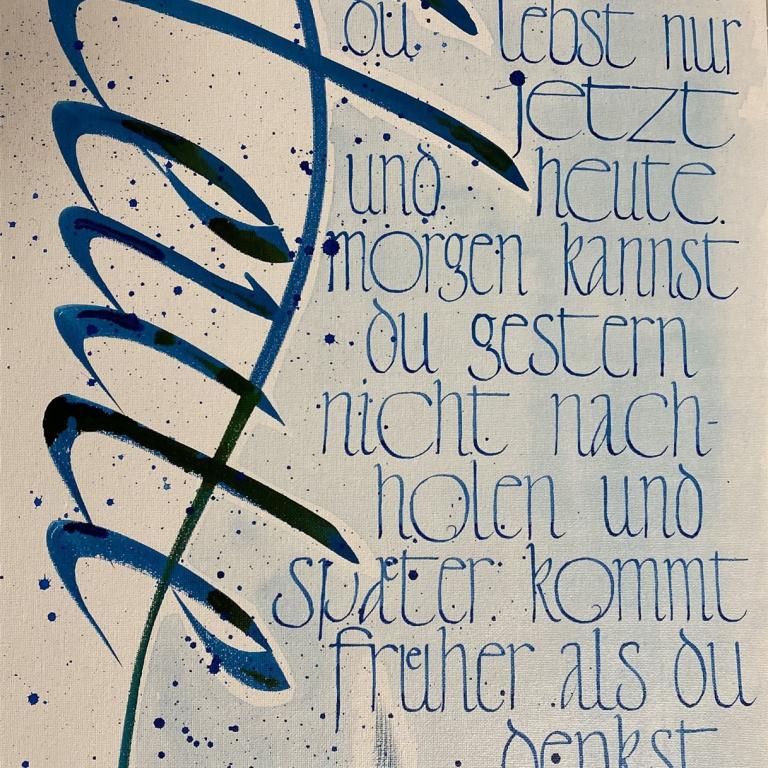 du lebst nur
jetzt
und heute.
morgen kannst
du gestern
nicht nach-
holen und
spæter kommt
fruͤher als du
denkst